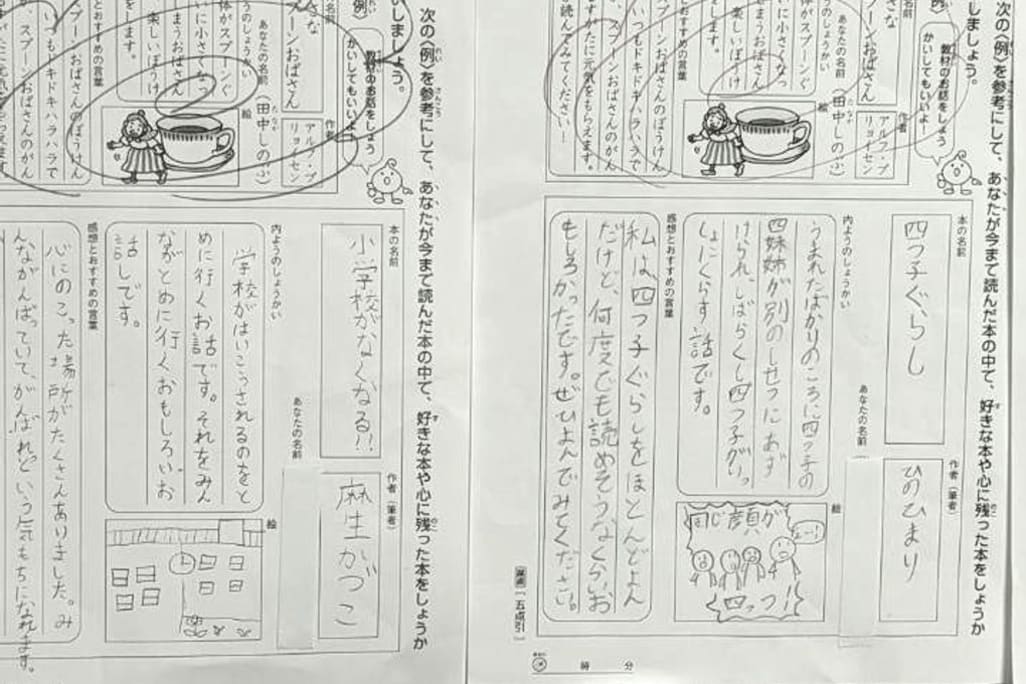 次の〈例〉を参考にして、あなたが今まで読んだ本の中で、好きな本や心に残った本をしょうか
しましょう。
教材のお話をしょう
かいしてもいいよ！
作者
アルフ・プ
リョイセン
スプーンおばさん
あなたの名前
（田中しのぶ）
絵
体がスプーンぐ
いに小さくなっ
まうおばさん
楽しいぼうけ
します。
感想とおすすめの言葉
いつもドキドキハラハラで
スプーンおばさんのがん
がたに元気をもらえます。
読んでみてください！
本の名前
四つ子ぐらし
作者（筆者）
ひのひまり
あなたの名前
内ようのしょうかい
うまれたばかりのころに四つ子の
四姉妹が別のしせつにあず
けられ、しばらくし四つ子がいっ
しょにくらす話です。
絵
同じ顔が
四っつ！
感想とおすすめの言葉
私は四つ子ぐらしをほとんどよん
だけど、何度でも読めそうなくらいお
もしろかったです。ぜひよんでみてください。
五点引
時 分
次の〈例〉を参考にして、あなたが今まで読んだ本の中で、好きな本や心に残った本をしょうか
いしましょう。
教材のお話をしょう
かいしてもいいよ！
作者
アルフ・プ
リョイセン
プーンおばさん
あなたの名前
（田中しのぶ）
絵
うのしょうかい
体がスプーンぐ
いに小さくなっ
まうおばさん
楽しいぼうけ
をします。
感想とおすすめの言葉
プーンおばさんのぼうけん
いつもドキドキハラハラで
スプーンおばさんのがん
がたに元気をもらえます
本の名前
小学校がなくなる!!
作者（筆者）
麻生かづこ
あなたの名前
内ようのしょうかい
学校がはいこうされるのをと
めに行くお話です。それをみん
ながとめに行くおもしろいお
話しです。
絵
感想とおすすめの言葉
心にのこった場所がたくさんありました。み
んながんばっていて、がんばれという気もちになれます。